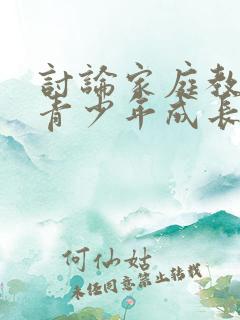 討論家庭教
青少年成長
何仙姑
未經同意禁止轉載